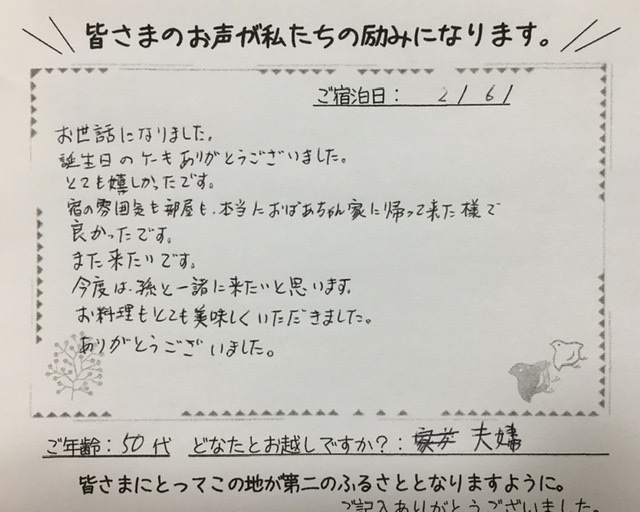 皆さまのお声が私たちの励みになります。
ご宿泊日: 2/6/
お世話になりました。
誕生日のケーキありがとうございました。
とても嬉しかったです。
宿の雰囲気も部屋も、本当におばあちゃん家に帰って来た様で
良かったです。
また来たいです。
今度は、孫と一緒に来たいと思います。
お料理もとても美味しくいただきました。
ありがとうございました。
ご年齢:50代 どなたとお越しですか?: 夫婦
皆さまにとってこの地が第二のふるさととなりますように。
ご記入ありがとうございました。